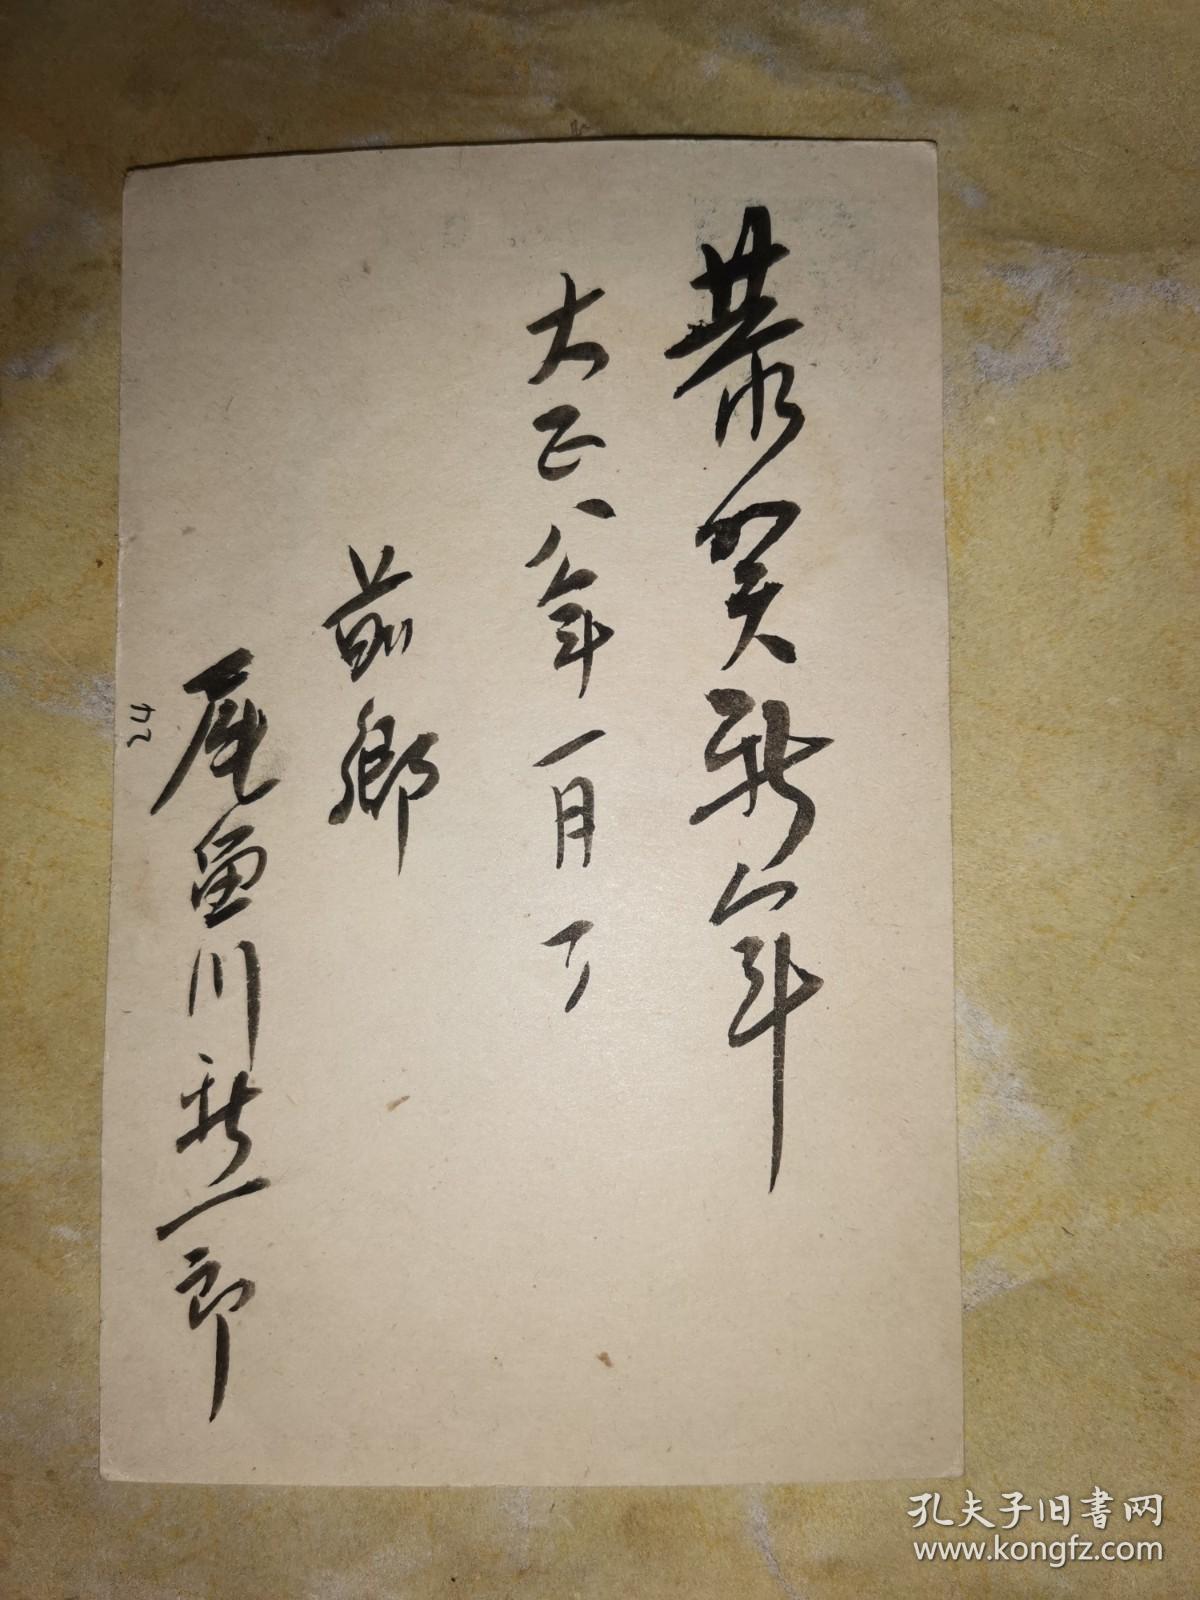 恭賀新年
大正八年一月一
前郷
尾留川新一郎
孔夫子旧書网
www.kongfz.com